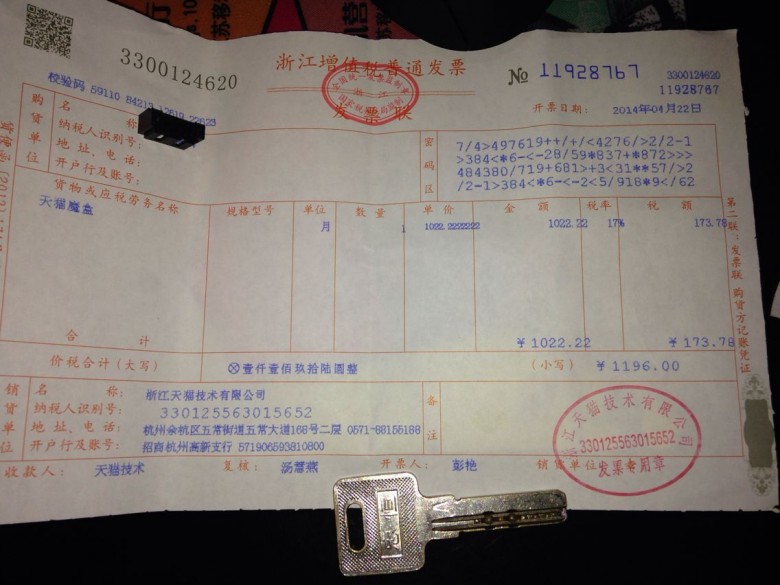 3300124620
浙江增值税普通发票
发票联
№ 11928767
3300124620
11928767
校验码 59110 84213 12619 22623
开票日期: 2014年04月22日
购货单位
名
纳税人识别号:
地址、电话:
开户行及账号:
密码区
7/4>497619++/+/<4276/>2/2-1
>384<*6-<-28/59*837+*872>>>
484380/719+681>+3<31**57/>2
/2-1>384<*6-<-2<5/918*9</62
货物或应税劳务名称 规格型号 单位 数量 单价 金额 税率 税额
天猫魔盒 月 1 1022.2222222 1022.22 17% 173.78
合计 ¥1022.22 ¥173.78
价税合计(大写) ⊗壹仟壹佰玖拾陆圆整 (小写) ¥1196.00
销货单位
名称: 浙江天猫技术有限公司
纳税人识别号: 330125563015652
地址、电话: 杭州余杭区五常街道五常大道168号二层 0571-88155188
开户行及账号: 招商杭州高新支行 571906593810800
备注
收款人: 天猫技术 复核: 汤慧燕 开票人: 彭艳 销货单位
浙江天猫技术有限公司
330125563015652
发票专用章
第二联:发票联 购货方记账凭证